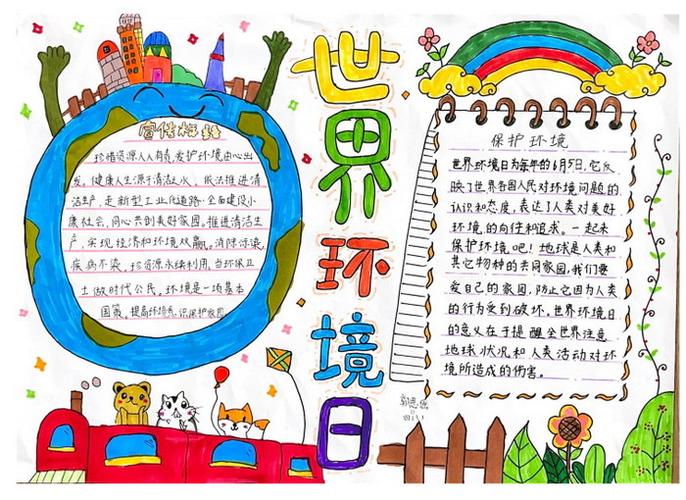 世界环境日
宣传标语
珍惜资源人人有责,爱护环境由心出
发。健康人生源于清洁之水。依法推进清
洁生产,走新型工业化道路。全面建设小
康社会,同心共创美好家园。推进清洁生
产,实现经济和环境双赢。消除污染,
疾病不染。珍资源永续利用,当环保卫
士做时代公民。环境是一项基本
国策。提高环境意识保护家园。
保护环境
世界环境日为每年的6月5日,它反
映了世界各国人民对环境问题的
认识和态度,表达了人类对美好
环境的向往和追求。一起来
保护环境吧!地球是人类和
其它物种的共同家园,我们要
爱自己的家园,防止它因为人类
的行为受到破坏。世界环境日
的意义在于提醒全世界注意
地球状况和人类活动对环
境所造成的伤害。